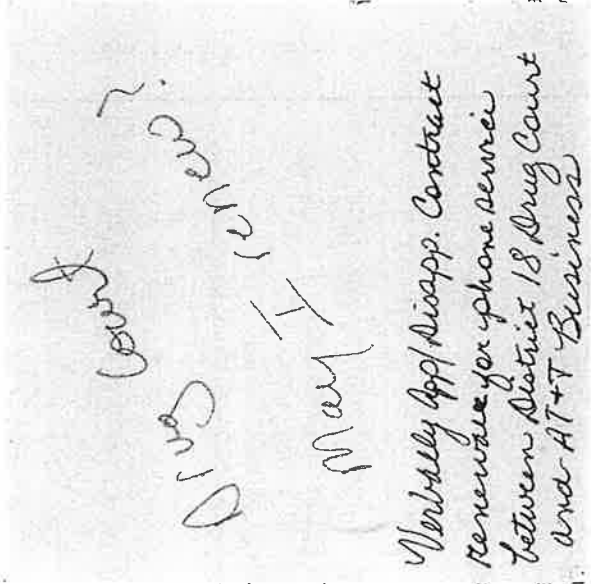 Drug Court
May I renew?
Verbally App/Disapp. Contract
renewal for phone service
between District 18 Drug Court
and AT+T Business